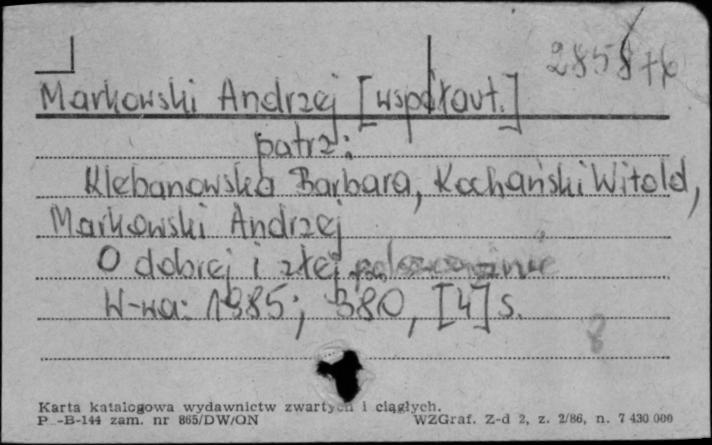 Markowski Andrzej [współaut.]
patrz:
Klebanowska Barbara, Kochański Witold,
Markowski Andrzej
O dobrej i złej
W-wa: 1985; 380, [4] s.
8
Karta katalogowa wydawnictw zwartych i ciągłych.
P -B-144 zam. nr 865/DW/ON WZGraf. Z-d 2, z. 2/86, n. 7 430 000